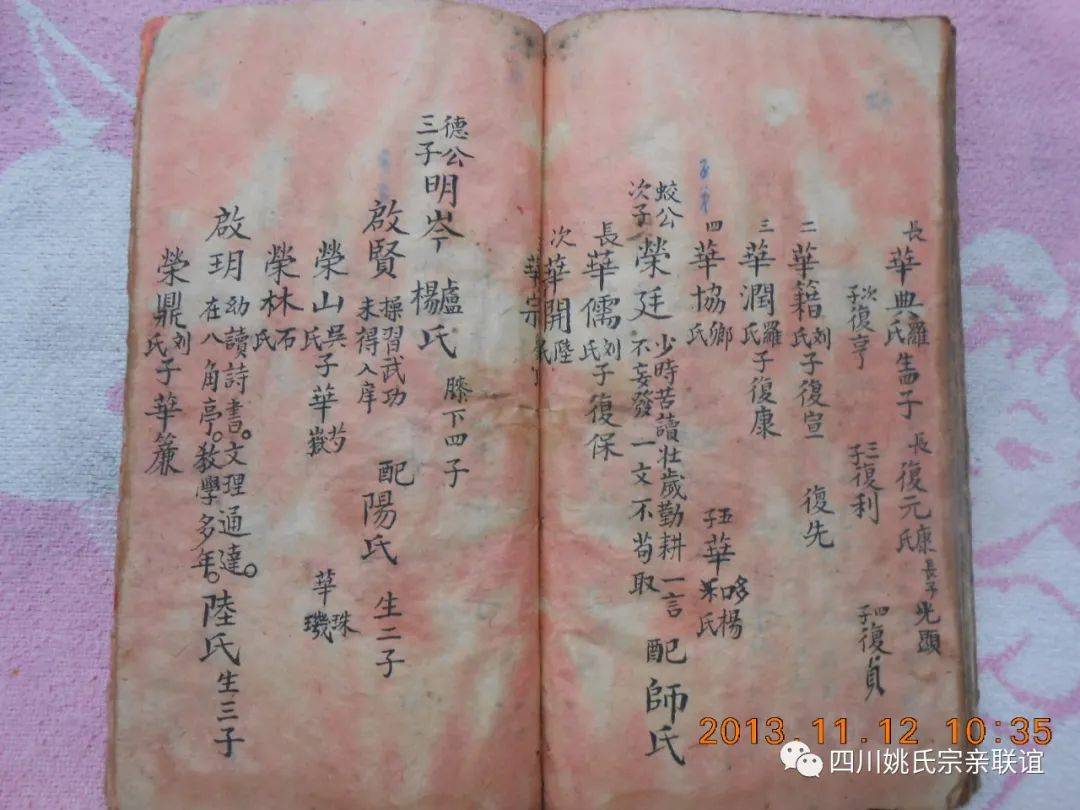 長華典羅氏生四子 長復元康氏 長子光顯
次子復亨 三子復利 四子復貞
二華籍刘氏子復宣 復先
三華潤羅氏子復康
四華協鄉氏 五子華和 楊氏
蛟公次子榮廷 少時苦讀壯歲勤耕一言不妄發一文不苟取 配師氏
長華儒刘氏子復保
次華開陸氏
華宗
德公三子明岑 盧氏 楊氏 膝下四子
啟賢 操習武功未得入庠 配陽氏 生二子
榮山吳氏子華嶽 華珠 璣
榮林石氏
啟玥 幼讀詩書。文理通達。在八角亭。教學多年。陸氏生三子
榮鼎刘氏子華簾
2013.11.12 10:35
四川姚氏宗亲联谊